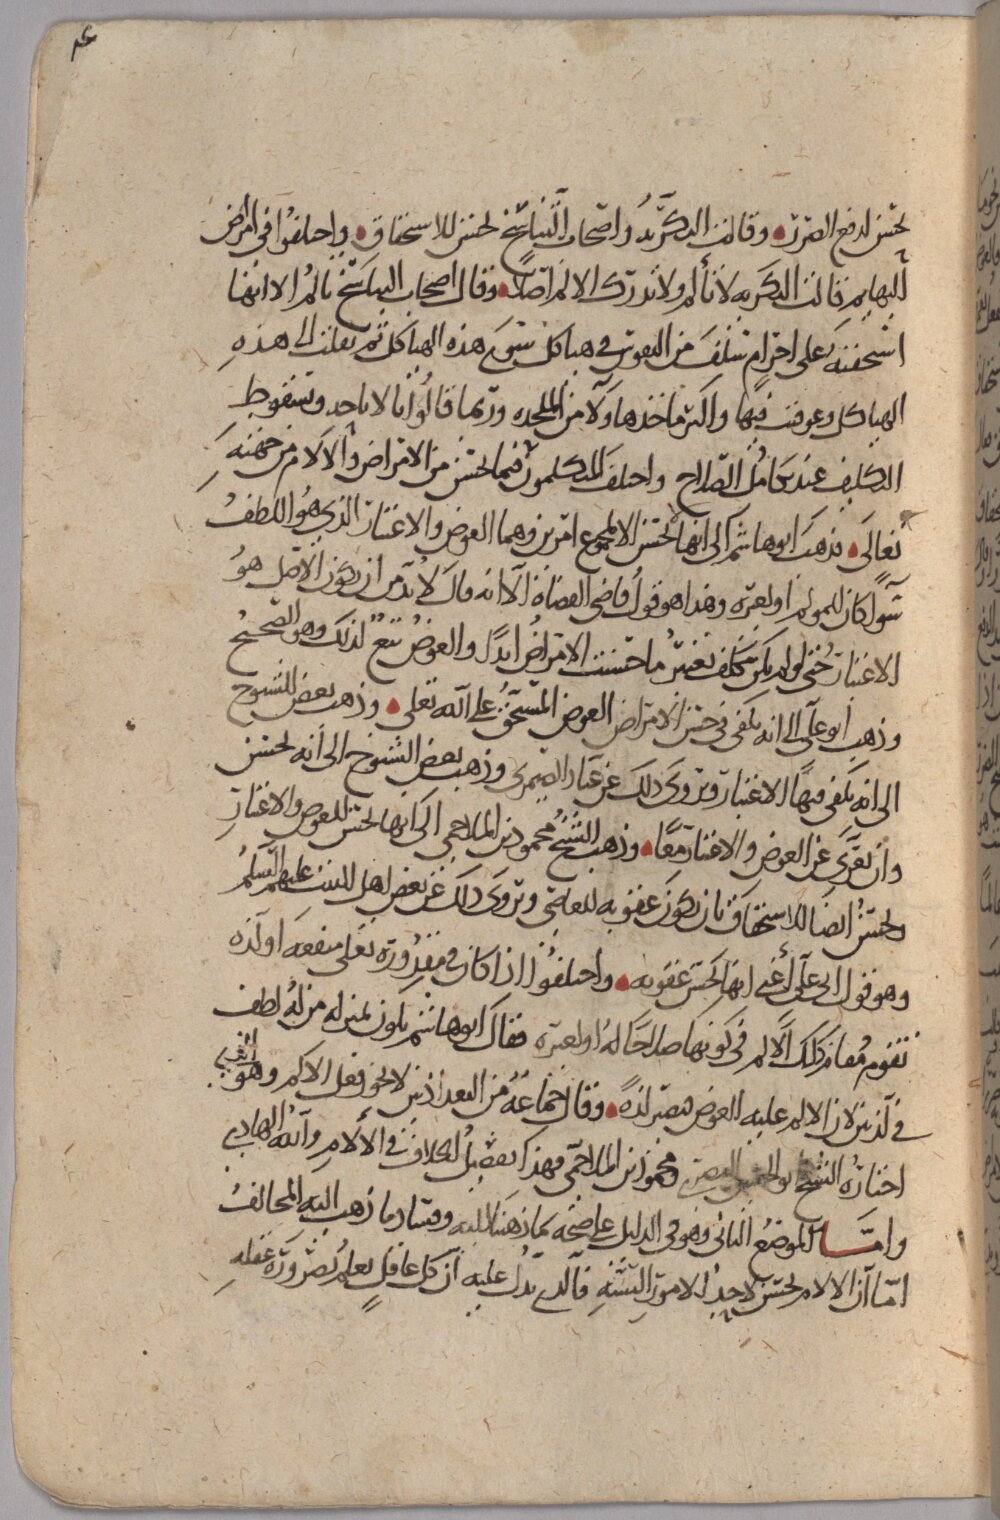 يحسن لدفع الضرر وقالت البكرية واصحاب التناسخ يحسن للاستحقاق واختلفوا في امراض
البهايم فقالت البكرية لا تألم ولا تدرك الالم اصلا وقال اصحاب التناسخ تالم الا انها
استحقته على اجرام سلف من النفوس في هياكل سوى هذه الهياكل ثم نقلت الى هذه
الهياكل وعوقبت فيها واكثر ما اخذ هاولآ من الملحده وربما قالوا بالاباحه وسقوط
التكليف عند تكامل الصلاح واختلف المتكلمون فيما يحسن من الامراض والآلام من جهته
تعالى فذهب ابو هاشم الى انها تحسن الا لمجموع امرين وهما العوض والاعتبار الذي هو اللطف
سوآ كان للمولم او لغيره وهذا هو قول قاضي القضاة الا انه قال لا بد من ان يكون الاصل هو
الاعتبار حتى لو لم يكن مكلف يعتبر ما حسنت الامراض ابدا والعوض تبع لذلك وهو الصحيح
وذهب ابو علي الى انه يكفي في حسن الامراض العوض المستحق على الله تعلى وذهب بعض الشيوخ
الى انه يكفي فيها الاعتبار ويروى ذلك عن عباد الصيمري وذهب بعض الشيوخ الى انه يحسن
وان تعرى عن العوض والاعتبار معا وذهب الشيخ محمود بن الملاحمي الى انها تحسن للعوض والاعتبار
ويحسن ايضا للاستحقاق بان يكون عقوبه للعاصي ويروى ذلك عن بعض اهل البيت عليهم السلم
وهو قول ابي علي أعني انها تحسن عقوبه واختلفوا اذا كان في مقدوره تعلى منفعه او لذه
تقوم مقام ذلك الالم في كونها صلاحا له او لغيره فقال ابو هاشم يكون بمنزله من له لطف
في امرين لان الالم عليه العوض فيصير لذة وقال جماعه من البغداذيين لا يجوز فعل الالم وهو الذي
اختاره الشيخ ابو الحسين البصري ومحمود بن الملاحمي فهذا تفصيل الخلاف في الآلام والله الهادي
وامـا الموضع الثاني وهو في الدليل على صحه ما ذهبنا اليه وفساد ما ذهب اليه المخالف
اما ان الآلام تحسن لاحد الامور الستة فالذي يدل عليه ان كل عاقل يعلم بضرورة عقله